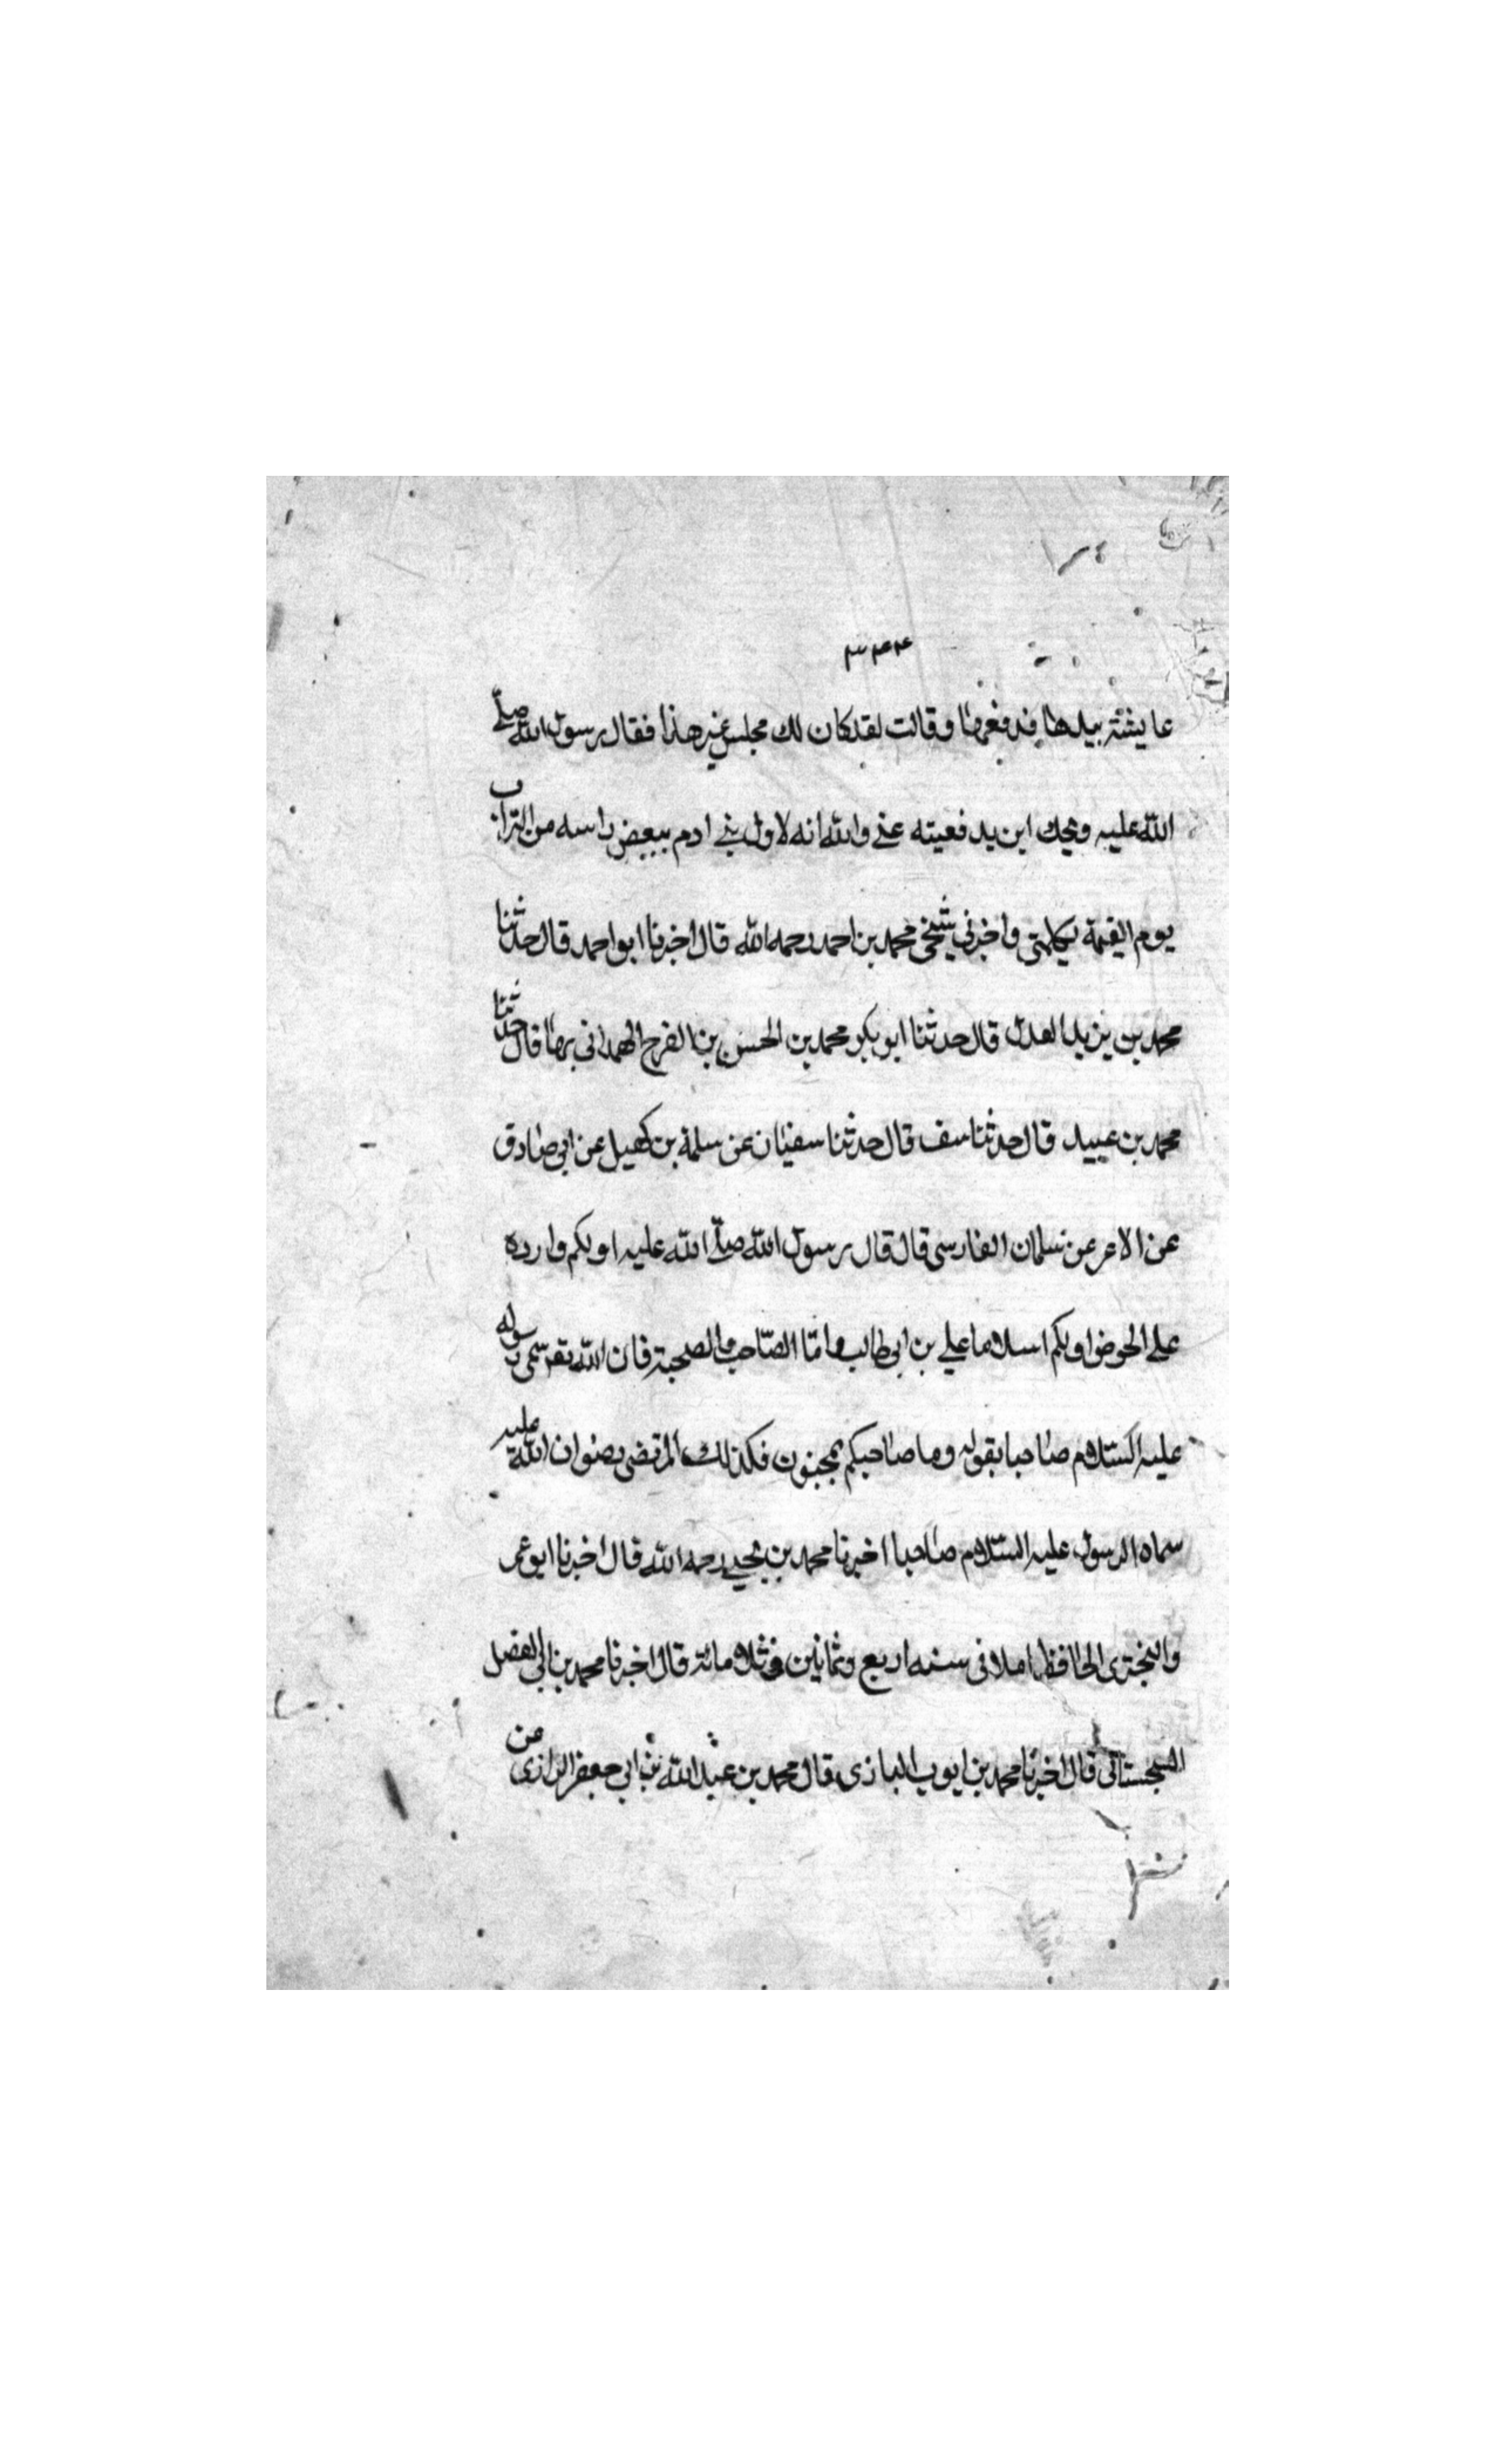 ۳۴۴
عايشة بيدها فدفعها وقالت لقد كان لك مجلس غير هذا فقال رسول الله صلى
الله عليه ويحك اين يدفعيته عني والله انه لاول بني ادم ينفض راسه من التراب
يوم القيمة واخبرني شيخي محمد بن احمد رحمه الله قال اخبرنا ابو احمد قال حدثنا
محمد بن يزيد العدل قال حدثنا ابو بكر محمد بن الحسن بن الفرج الهمداني بها قال حدثنا
محمد بن عبيد قال حدثنا سف قال حدثنا سفيان عن سلمة بن كهيل عن ابي صادق
عن الاعر عن سلمان الفارسي قال قال رسول الله صلى الله عليه اولكم وارده
على الحوض اولكم اسلاما علي بن ابي طالب واما الصاحب والصحبة فان الله تع سمى رسوله
عليه السلام صاحبا بقوله وما صاحبكم بمجنون فكذلك المرتضى رضوان الله عليه
سماه الرسول عليه السلام صاحبا اخبرنا محمد بن يحيى رحمه الله قال اخبرنا ابو عمر
والبختري الحافظ املا في سنه اربع وثمانين وثلاث مائة قال اخبرنا محمد بن ابي الفضل
السجستاني قال اخبرنا محمد بن ايوب الرازي قال محمد بن عبد الله بن ابي جعفر الرازي عن